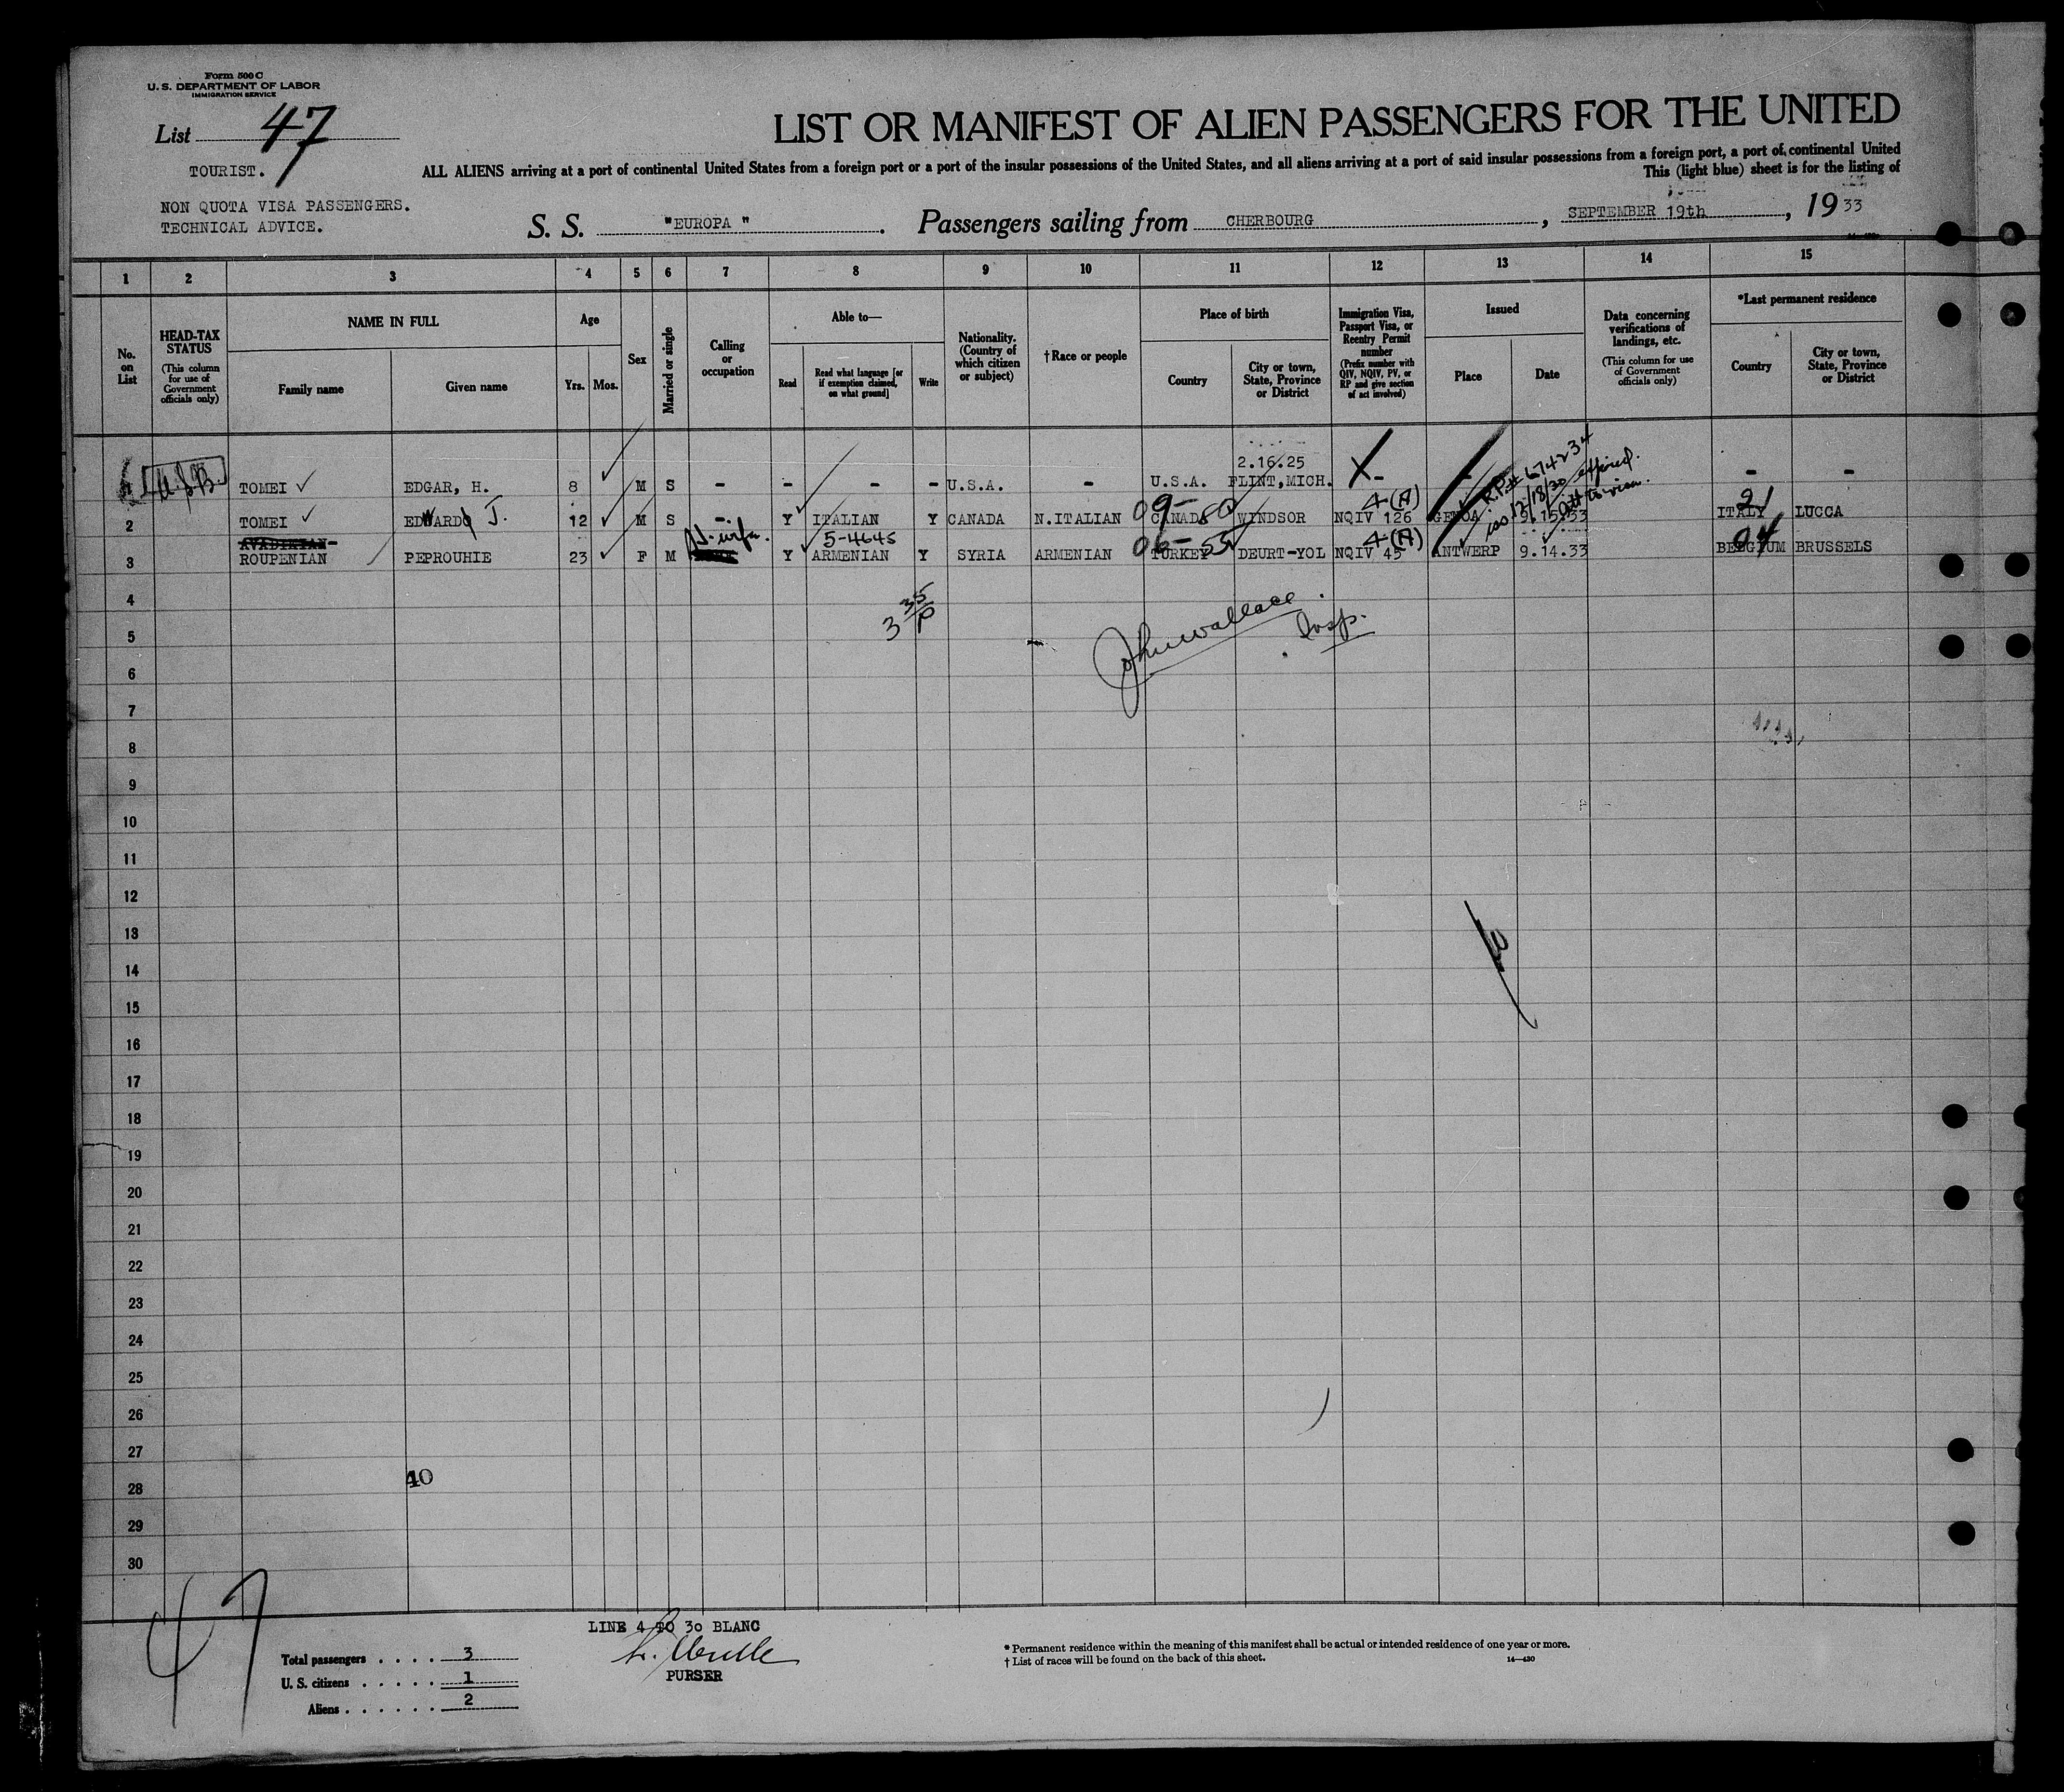 Form 500 C
U. S. DEPARTMENT OF LABOR
IMMIGRATION SERVICE
List 47
LIST OR MANIFEST OF ALIEN PASSENGERS FOR THE UNITED
TOURIST.
ALL ALIENS arriving at a port of continental United States from a foreign port or a port of the insular possessions of the United States, and all aliens arriving at a port of said insular possessions from a foreign port, a port of continental United
This (light blue) sheet is for the listing of
NON QUOTA VISA PASSENGERS.
TECHNICAL ADVICE.
S. S. "EUROPA" . Passengers sailing from CHERBOURG , SEPTEMBER 19th , 19 33
1 2 3 4 5 6 7 8 9 10 11 12 13 14 15
No. on List
HEAD-TAX STATUS (This column for use of Government officials only)
NAME IN FULL
Family name Given name
Age
Yrs. Mos.
Sex
Married or single
Calling or occupation
Able to—
Read
Read what language [or if exemption claimed, on what ground]
Write
Nationality. (Country of which citizen or subject)
†Race or people
Place of birth
Country
City or town, State, Province or District
Immigration Visa, Passport Visa, or Reentry Permit number (Prefix number with QIV, NQIV, PV, or RP and give section of act involved)
Issued
Place Date
Data concerning verifications of landings, etc. (This column for use of Government officials only)
*Last permanent residence
Country
City or town, State, Province or District
2.16.25
TOMEI EDGAR, H. 8 M S - - - - U.S.A. - U.S.A. FLINT, MICH. - - -
R.P.# 674234
iss 12/18/30
4(A)
2 TOMEI EDWARD J. 12 M S - Y ITALIAN Y CANADA N.ITALIAN 09- CANADA WINDSOR NQIV 126 GENOA 9.15.33 ITALY 21 LUCCA
AVADIKIAN
5-4645
4(A)
3 ROUPENIAN PEPROUHIE 23 F M H-wife. Y ARMENIAN Y SYRIA ARMENIAN 06-55 TURKEY DEURT-YOL NQIV 45 ANTWERP 9.14.33 BELGIUM 04 BRUSSELS
4
5
John Wallace
Insp.
6
7
8
9
10
11
12
13
14
15
16
17
18
19
20
21
22
23
24
25
26
27
28
40
29
30
47
LINE 4 TO 30 BLANC
PURSER
Total passengers . . . . 3
U. S. citizens . . . . . 1
Aliens . . . . . . . 2
* Permanent residence within the meaning of this manifest shall be actual or intended residence of one year or more.
† List of races will be found on the back of this sheet.
14—430